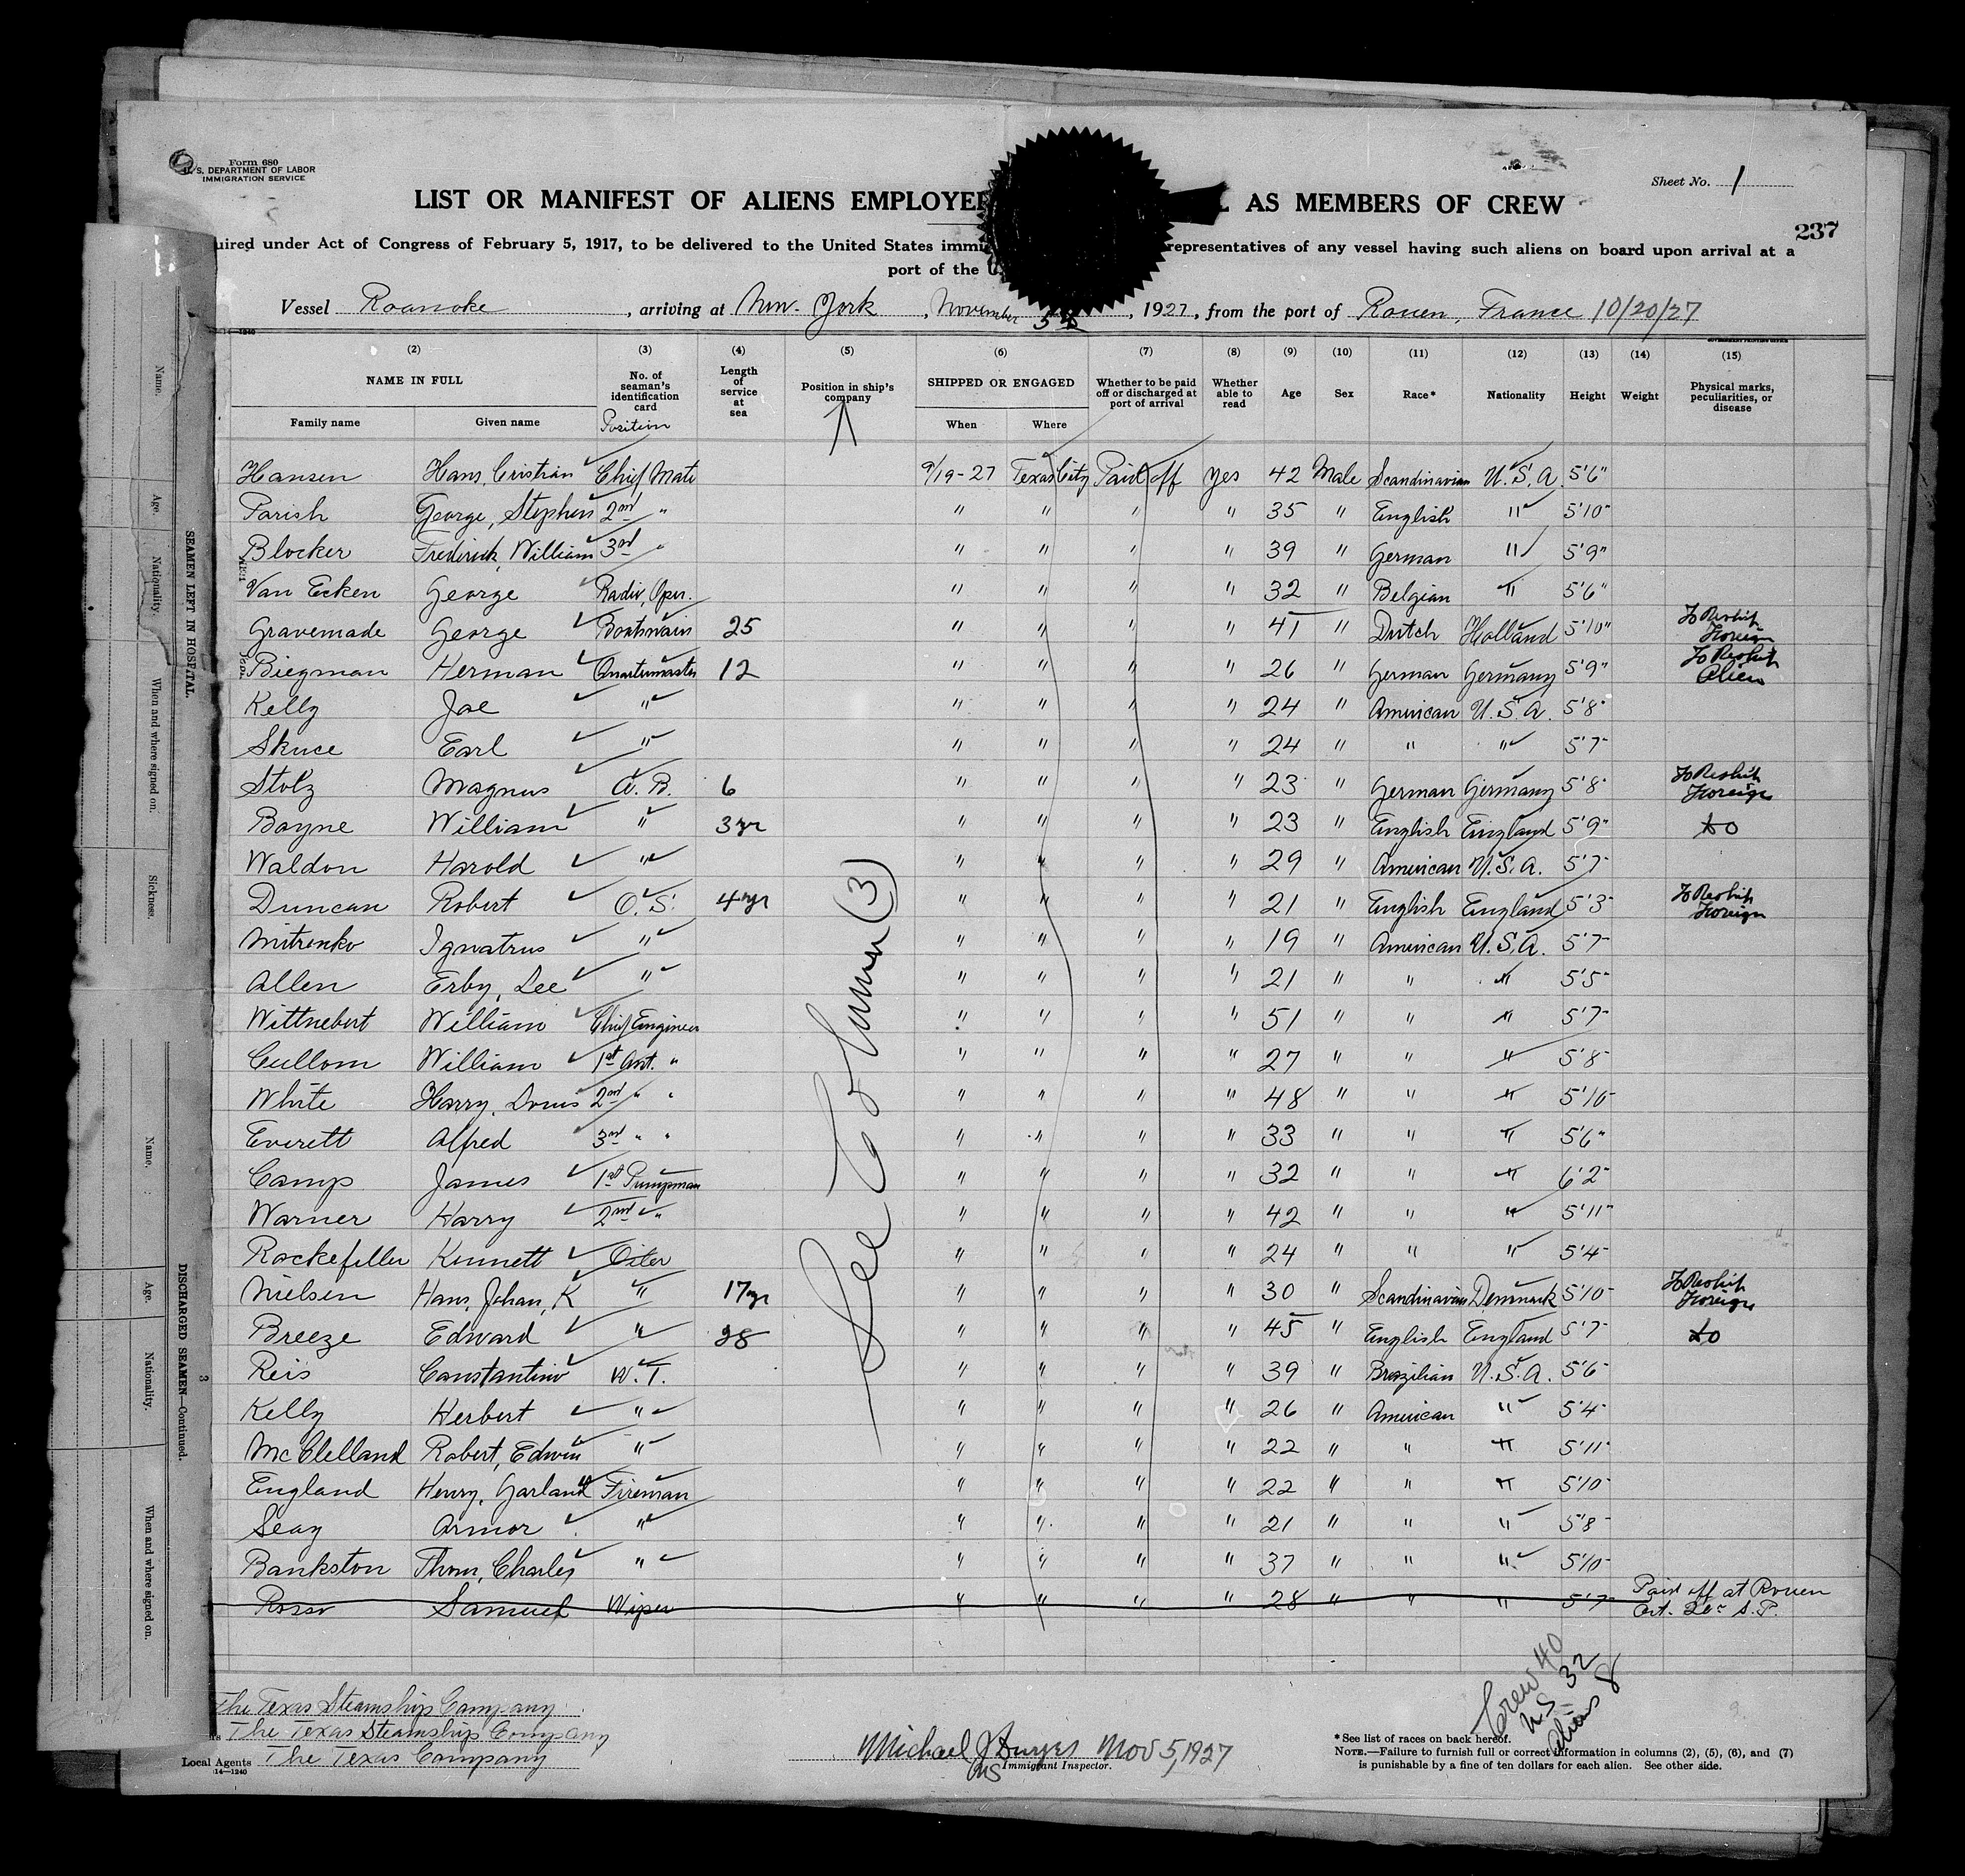 Form 680
U.S. DEPARTMENT OF LABOR
IMMIGRATION SERVICE
Sheet No. 1
LIST OR MANIFEST OF ALIENS EMPLOYE AS MEMBERS OF CREW
237
uired under Act of Congress of February 5, 1917, to be delivered to the United States immi representatives of any vessel having such aliens on board upon arrival at a
port of the U
Vessel Roanoke, arriving at New York, November 5th, 1927, from the port of Rouen, France 10/20/27
14—1240
(2) (3) (4) (5) (6) (7) (8) (9) (10) (11) (12) (13) (14) (15)
NAME IN FULL
Family name Given name
No. of seaman's identification card
Position
Length of service at sea
Position in ship's company
SHIPPED OR ENGAGED
When Where
Whether to be paid off or discharged at port of arrival
Whether able to read
Age Sex Race* Nationality Height Weight
Physical marks, peculiarities, or disease
Hansen Hans, Cristian Chief Mate 9/19-27 Texas City Paid off yes 42 Male Scandinavian U.S.A. 5'6"
Parish George, Stephen 2nd " " " " " 35 " English " 5'10"
Blocker Frederick, William 3rd " " " " " 39 " German " 5'9"
Van Ecken George Radio, Oper. " " " " 32 " Belgian " 5'6"
Gravemade George Boatswain 25 " " " " 41 " Dutch Holland 5'10" To Reship Foreign
Biegman Herman Quartermaster 12 " " " " 26 " German Germany 5'9" To Reship Alien
Kelly Joe " " " " " 24 " American U.S.A. 5'8"
Skuce Earl " " " " " 24 " " " 5'7"
Stolz Magnus A.B. 6 " " " " 23 " German Germany 5'8" To Reship Foreign
Bayne William " 3 yr " " " " 23 " English England 5'9" do
Waldon Harold " " " " " 29 " American U.S.A. 5'7"
Duncan Robert O.S. 4 yr " " " " 21 " English England 5'3" To Reship Foreign
Mitrenko Ignatrus " " " " " 19 " American U.S.A. 5'7"
Allen Erby, Lee " " " " " 21 " " " 5'5"
Wittnebert William Chief Engineer " " " " 51 " " " 5'7"
Cullom William 1st Asst. " " " " " 27 " " " 5'8"
White Harry, Louis 2nd " " " " " " 48 " " " 5'10"
Everett Alfred 3rd " " " " " " 33 " " " 5'6"
Camp James 1st Pumpman " " " " 32 " " " 6'2"
Warner Harry 2nd " " " " " 42 " " " 5'11"
Rockefeller Kennett Oiler " " " " 24 " " " 5'4"
Nielsen Hans, Johan, K " 17 yr " " " " 30 " Scandinavian Denmark 5'10" To Reship Foreign
Breeze Edward " 28 " " " " 45 " English England 5'7" do
Reis Constantino W.T. " " " " 39 " Brazilian U.S.A. 5'6"
Kelly Herbert " " " " " 26 " American " 5'4"
McClelland Robert, Edwin " " " " " 22 " " " 5'11"
England Henry, Garland Fireman " " " " 22 " " " 5'10"
Seay Armor " " " " " 21 " " " 5'8"
Bankston Thom, Charles " " " " " 37 " " " 5'10"
Rosso Samuel Wiper " " " " 28 " " " 5'7" Paid off at Rouen
Oct. 20th S.P.
See Column (3)
Crew 40
U.S. 32
Aliens 8
The Texas Steamship Company
The Texas Steamship Company
Local Agents The Texas Company
14—1240
Nov 5, 1927
Immigrant Inspector.
*See list of races on back hereof.
NOTE.—Failure to furnish full or correct information in columns (2), (5), (6), and (7)
is punishable by a fine of ten dollars for each alien. See other side.
SEAMEN LEFT IN HOSPITAL.
Name. Age. Nationality. When and where signed on. Sickness.
DISCHARGED SEAMEN—Continued.
3
Name. Age. Nationality. When and where signed on.